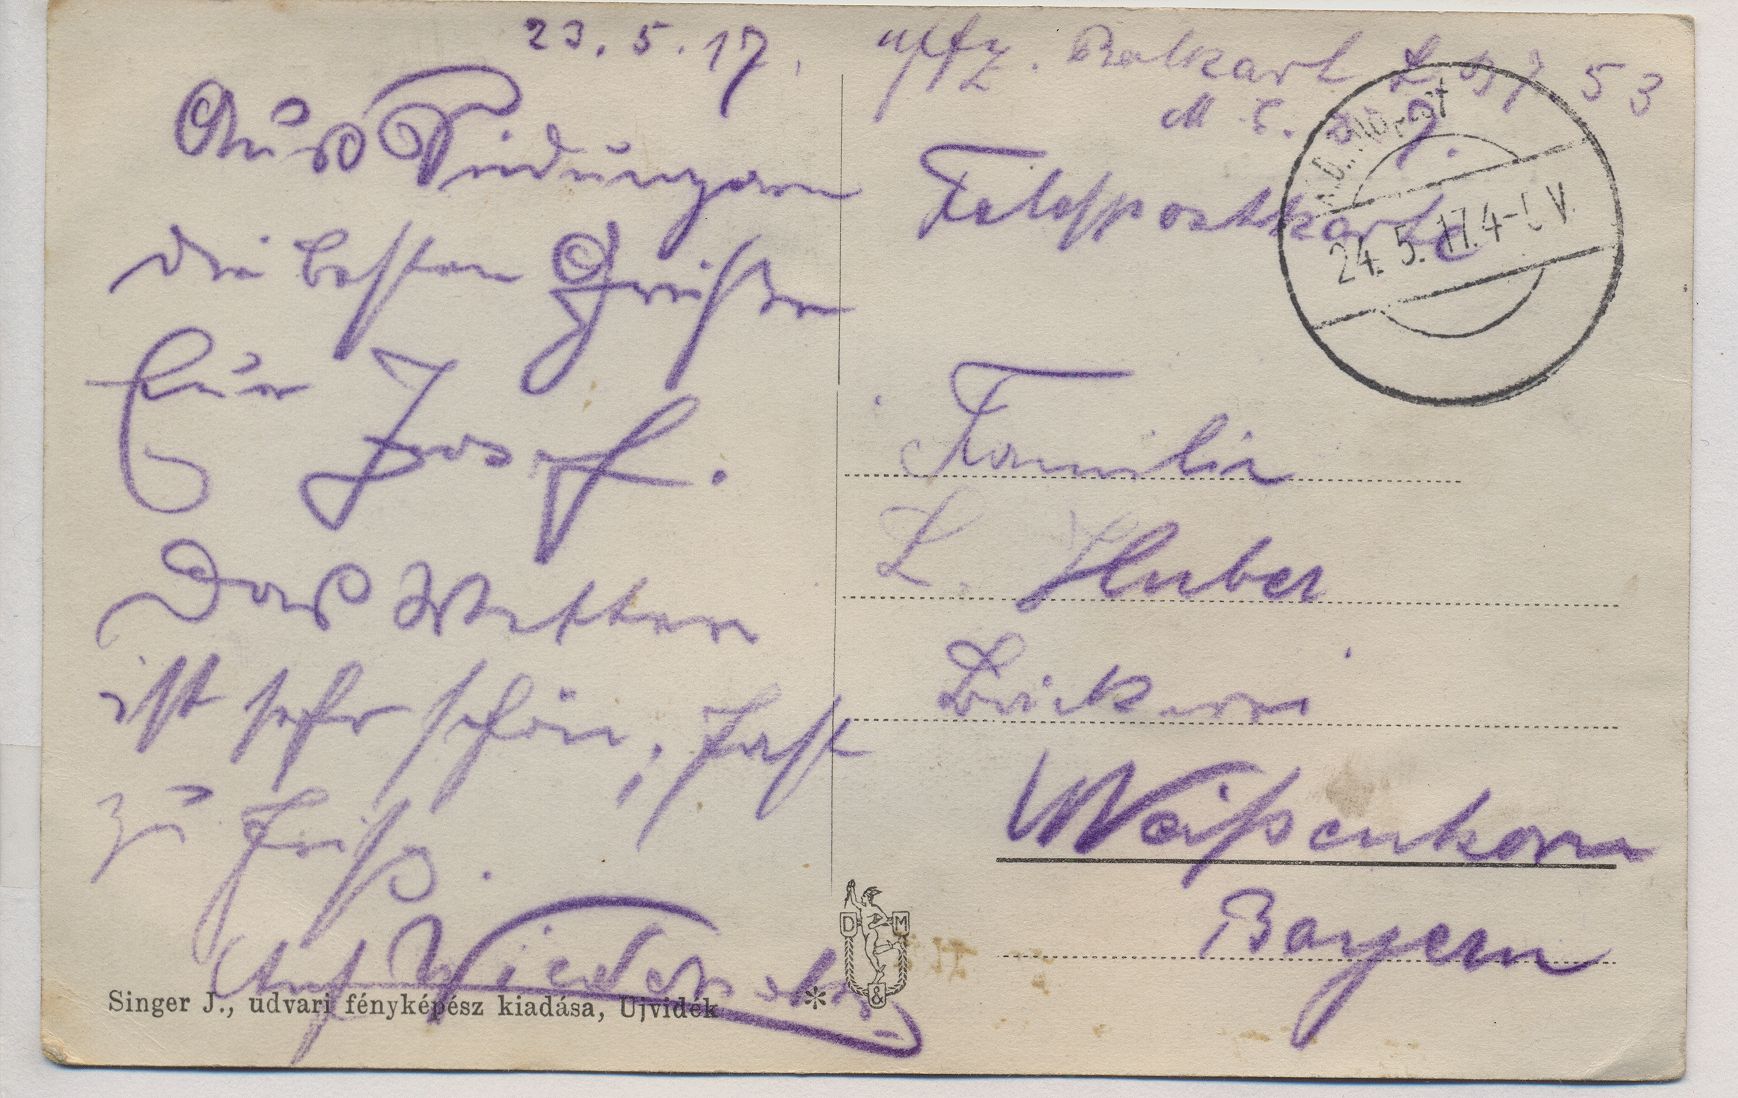 23. 5. 17.
Aus Südungarn
die besten Grüße
Euer Josef.
Das Wetter
ist sehr schön, fast
zu heiß.
Auf Wiedersehn
Singer J., udvari fényképész kiadása, Ujvidék
Uffz. L 53
Feldpostkarte
24. 5. 17. 4- V.
Familie
L. Huber
Bäckerei
Weißenhorn
Bayern
D M &